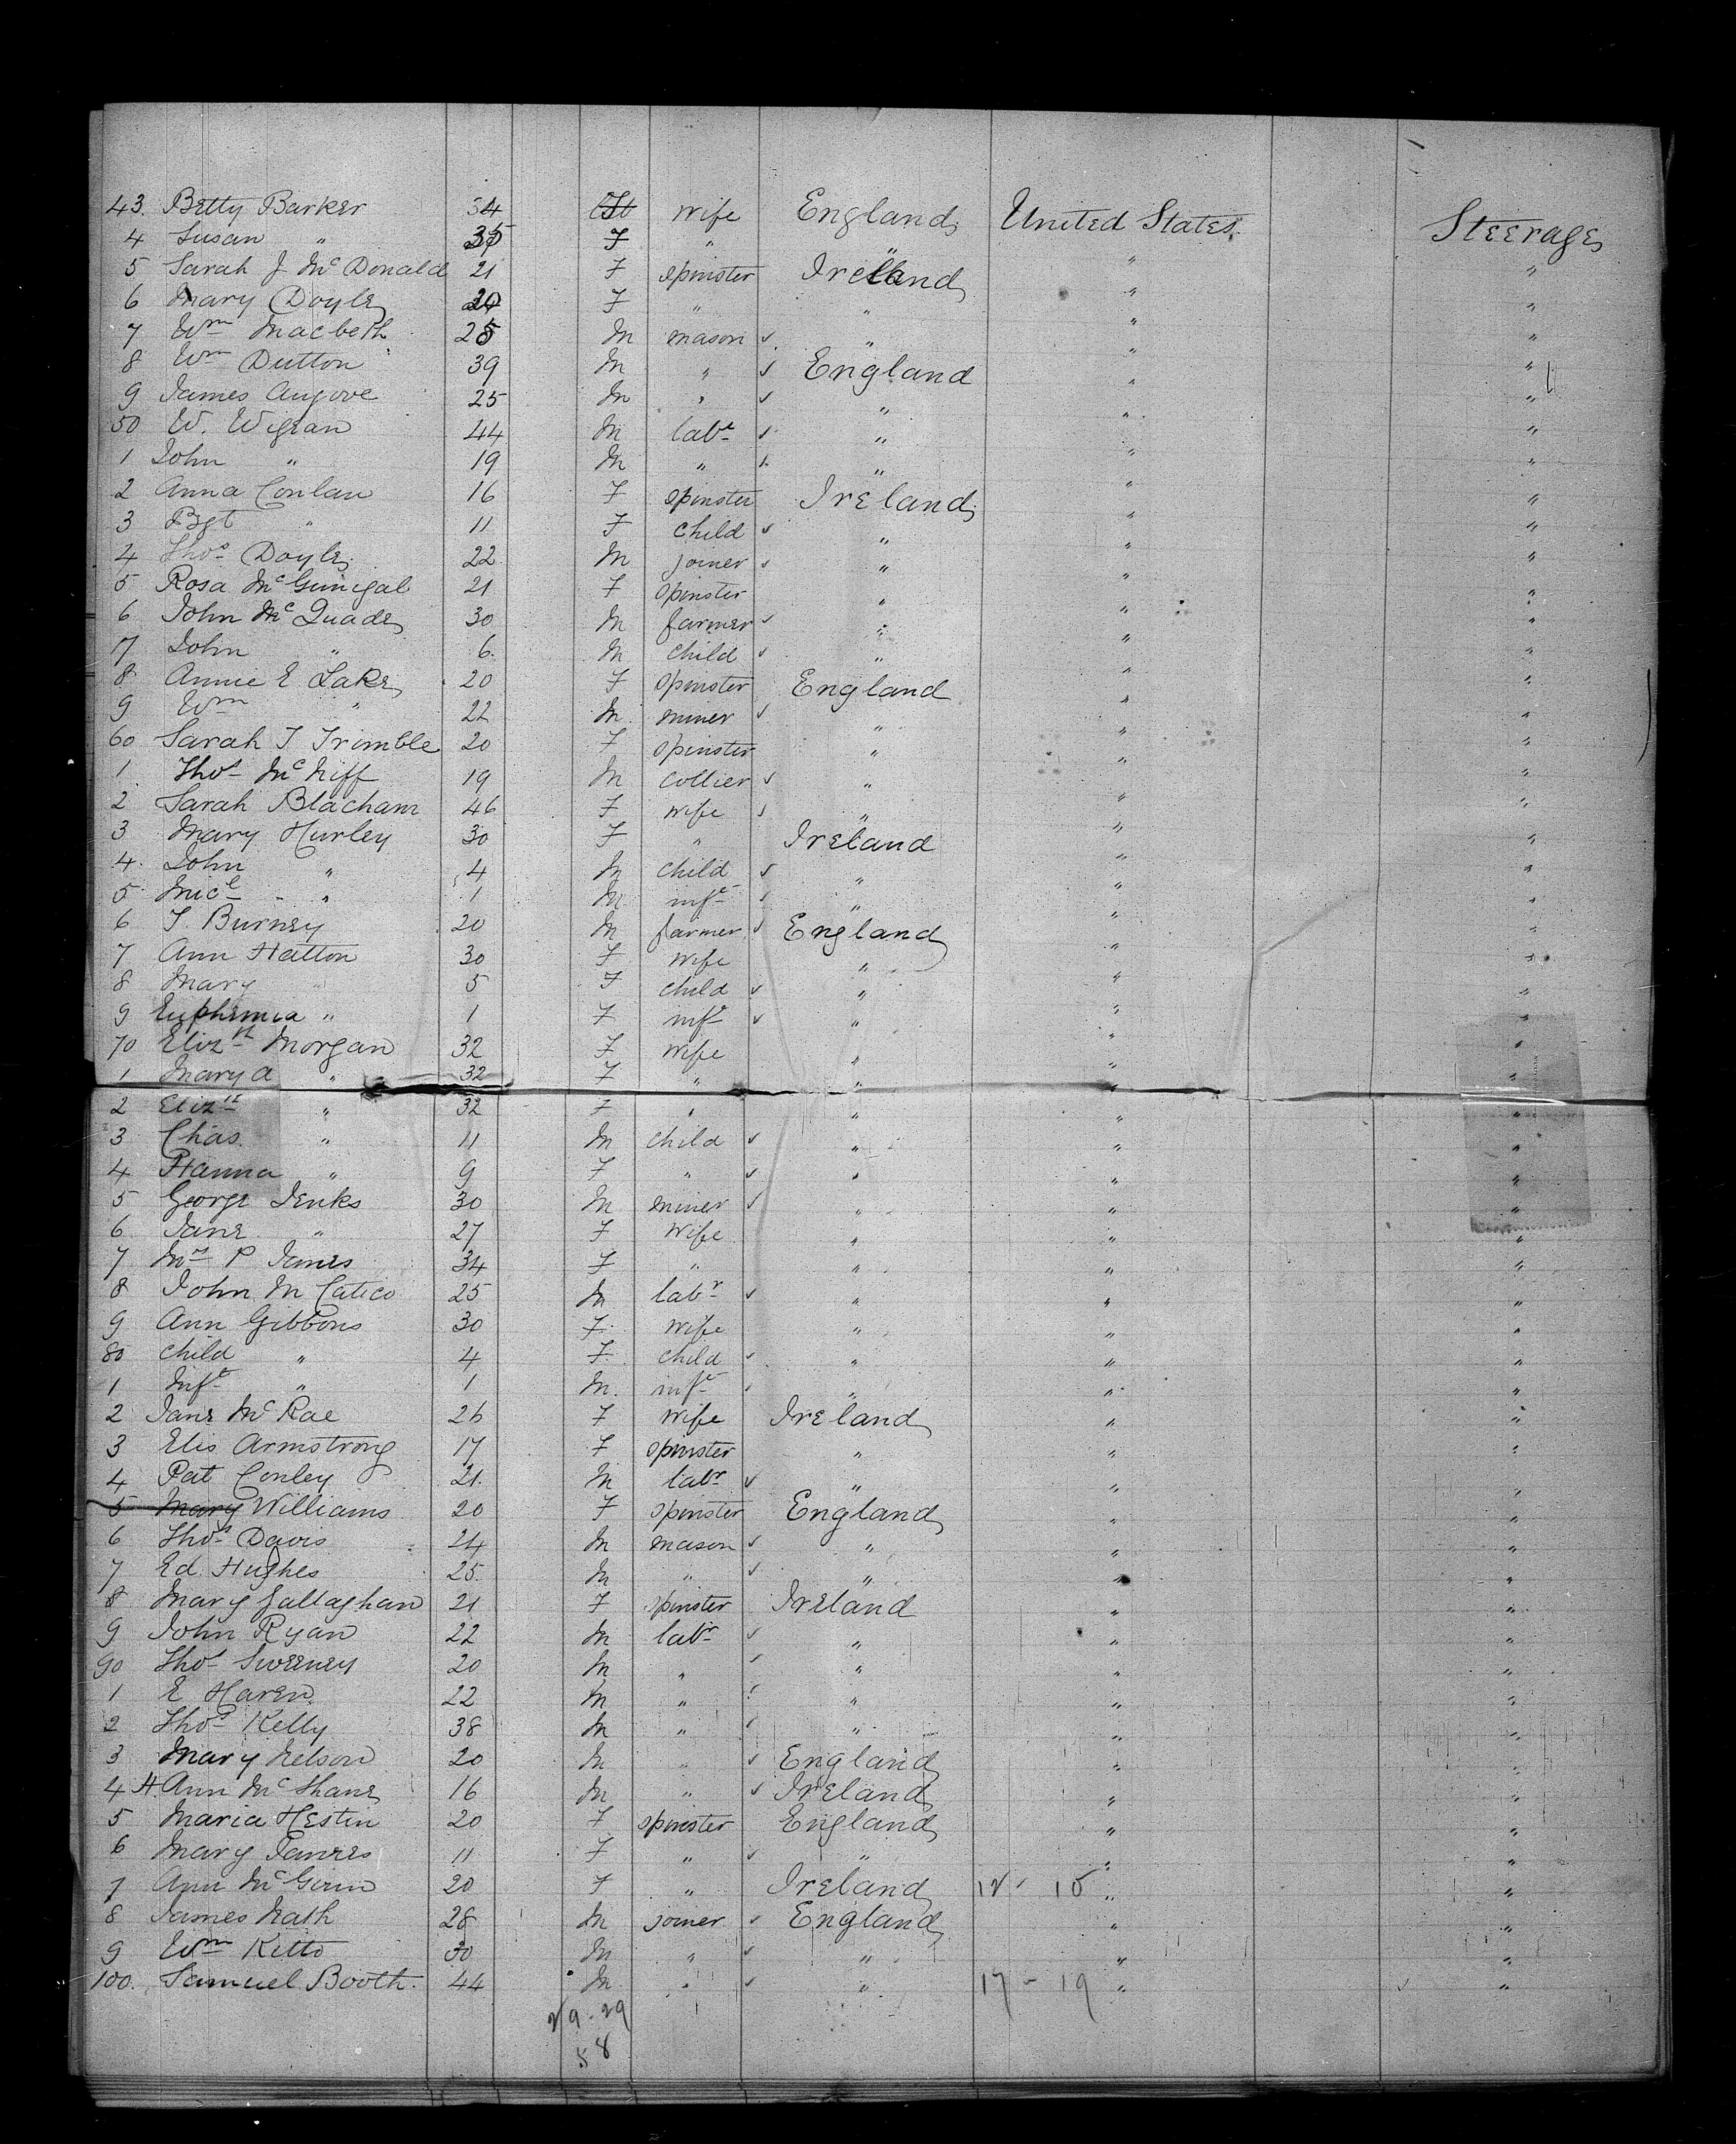 43. Betty Barker 34 F wife England United States. Steerage
4 Susan " 35 F " " " "
5 Sarah J McDonald 21 F spinster Ireland " "
6 Mary Doyle 20 F " " " "
7 Wm Macbeth 25 M mason " " "
8 Wm Dutton 39 M " England " "
9 James Angove 25 M " " " "
50 W. Wigean 44 M labr " " "
1 John " 19 M " " " "
2 Anna Conlan 16 F spinster Ireland " "
3 Bgt " 11 F child " " "
4 Thos Doyle 22 M joiner " " "
5 Rosa McGunigal 21 F spinster " " "
6 John McQuade 30 M farmer " " "
7 John " 6 M child " " "
8 Annie E Lake 20 F spinster England " "
9 Wm " 22 M miner " " "
60 Sarah J Trimble 20 F spinster " " "
1 Thos McNiff 19 M collier " " "
2 Sarah Blacham 46 F wife " " "
3 Mary Hurley 30 F " Ireland " "
4. John " 4 M child " " "
5 Micl " 1 M inft " " "
6 T. Burney 20 M farmer England " "
7 Ann Hatton 30 F wife " " "
8 Mary " 5 F child " " "
9 Euphemia " 1 F inft " " "
70 Elizth Morgan 32 F wife " " "
1 Mary A " 32 F " " " "
2 Elizth " 32 F " " " "
3 Chas. " 11 M child " " "
4 Hanna " 9 F " " " "
5 George Jenks 30 M miner " " "
6 Jane " 27 F wife " " "
7 Mrs P James 34 F " " " "
8 John M Catico 25 M labr " " "
9 Ann Gibbons 30 F wife " " "
80 child " 4 F child " " "
1 Inft " 1 M. inft " " "
2 Jane McRae 26 F wife Ireland " "
3 Elis Armstrong 17 F spinster " " "
4 Pat Conley 21. M labr " " "
5 Mary Williams 20 F spinster England " "
6 Thos Davis 24 M mason " " "
7 Ed. Hughes 25. M " " " "
8 Mary Gallaghan 21 F spinster Ireland " "
9 John Ryan 22 M labr " " "
90 Thos Sweeney 20 M " " " "
1 E Haren 22 M " " " "
2 Thos Kelly 38 M " " " "
3 Mary Nelson 20 M " England " "
4 H. Ann McShane 16 M " Ireland " "
5 Maria Hestin 20 F spinster England " "
6 Mary James 11 F " " " "
7 Ann McGinn 20 F " Ireland 12 - 15 " "
8 James Nash 28 M joiner England " "
9 Wm Kitto 30 M " " " "
100. Samuel Booth. 44 M " " 17 - 19 " "
29 - 29
58